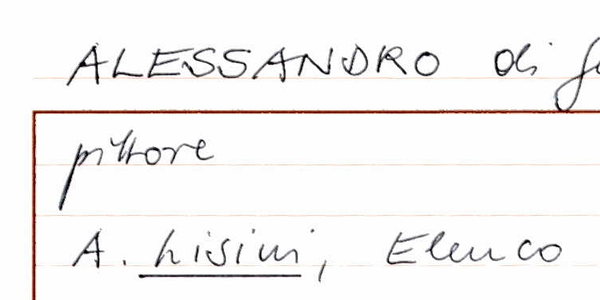 ALESSANDRO di
pittore
A. Lisini, Elenco